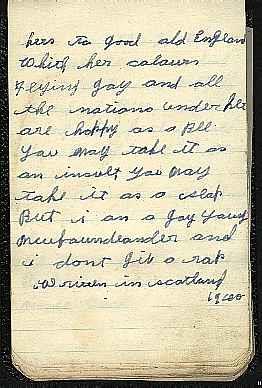 hers to good old England
With her colours
Flying gay and all
the nations under her
are happy as a Bee
You may take it as
an insult you may
take it as a slap
But i am a gay young
Newfoundlander and
i dont giv a rap
Wriren in scotland